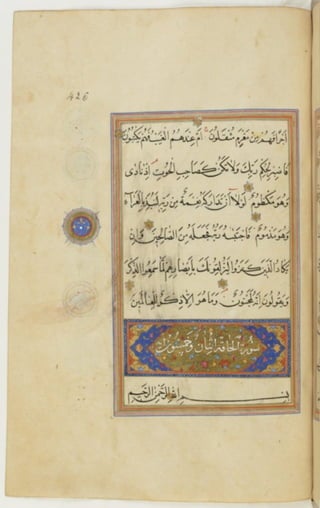 426
اَجْرًا فَهُمْ مِنْ مَغْرَمٍ مُثْقَلُونَ اَمْ عِنْدَهُمُ الْغَيْبُ فَهُمْ يَكْتُبُونَ
فَاصْبِرْ لِحُكْمِ رَبِّكَ وَلَا تَكُنْ كَصَاحِبِ الْحُوتِ اِذْ نَادٰى
وَهُوَ مَكْظُومٌ لَوْلَا اَنْ تَدَارَكَهُ نِعْمَةٌ مِنْ رَبِّهِ لَنُبِذَ بِالْعَرَاءِ
وَهُوَ مَذْمُومٌ فَاجْتَبٰهُ رَبُّهُ فَجَعَلَهُ مِنَ الصَّالِحِينَ وَاِنْ
يَكَادُ الَّذِينَ كَفَرُوا لَيُزْلِقُونَكَ بِاَبْصَارِهِمْ لَمَّا سَمِعُوا الذِّكْرَ
وَيَقُولُونَ اِنَّهُ لَمَجْنُونٌ وَمَا هُوَ اِلَّا ذِكْرٌ لِلْعَالَمِينَ
سورة الحاقة اثنان وخمسون
بسم الله الرحمن الرحيم